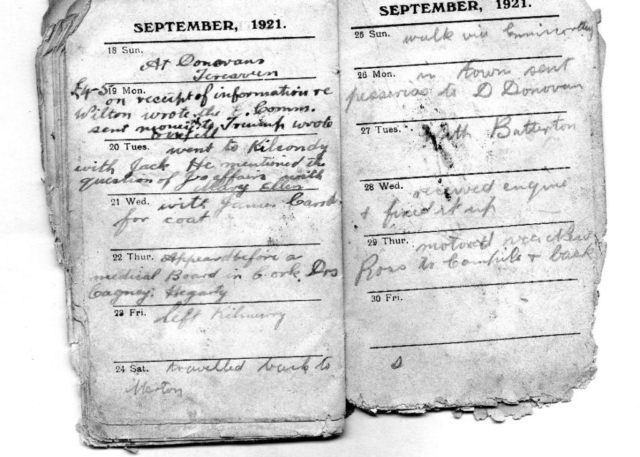 SEPTEMBER, 1921.
18 Sun.
At Donovans
19 Mon.
on receipt of information re
Wilton wrote Comm.
sent money to Triumph wrote
20 Tues. went to Kilcondy
with Jack. He mentioned the
question of Jos affairs with
Mary Ellen
21 Wed. with James
for coat
22 Thur. Appeared before a
medical Board in Cork. Drs
Cagney. Hegarty
23 Fri. left Kilmurry
24 Sat. travelled back to
SEPTEMBER, 1921.
25 Sun. walk via Enniscorthy
26 Mon. in town sent
to D Donovan
27 Tues. with Batterton
28 Wed. received engine
& fixed it up
29 Thur. motored New
Ross to Campile & back
30 Fri.